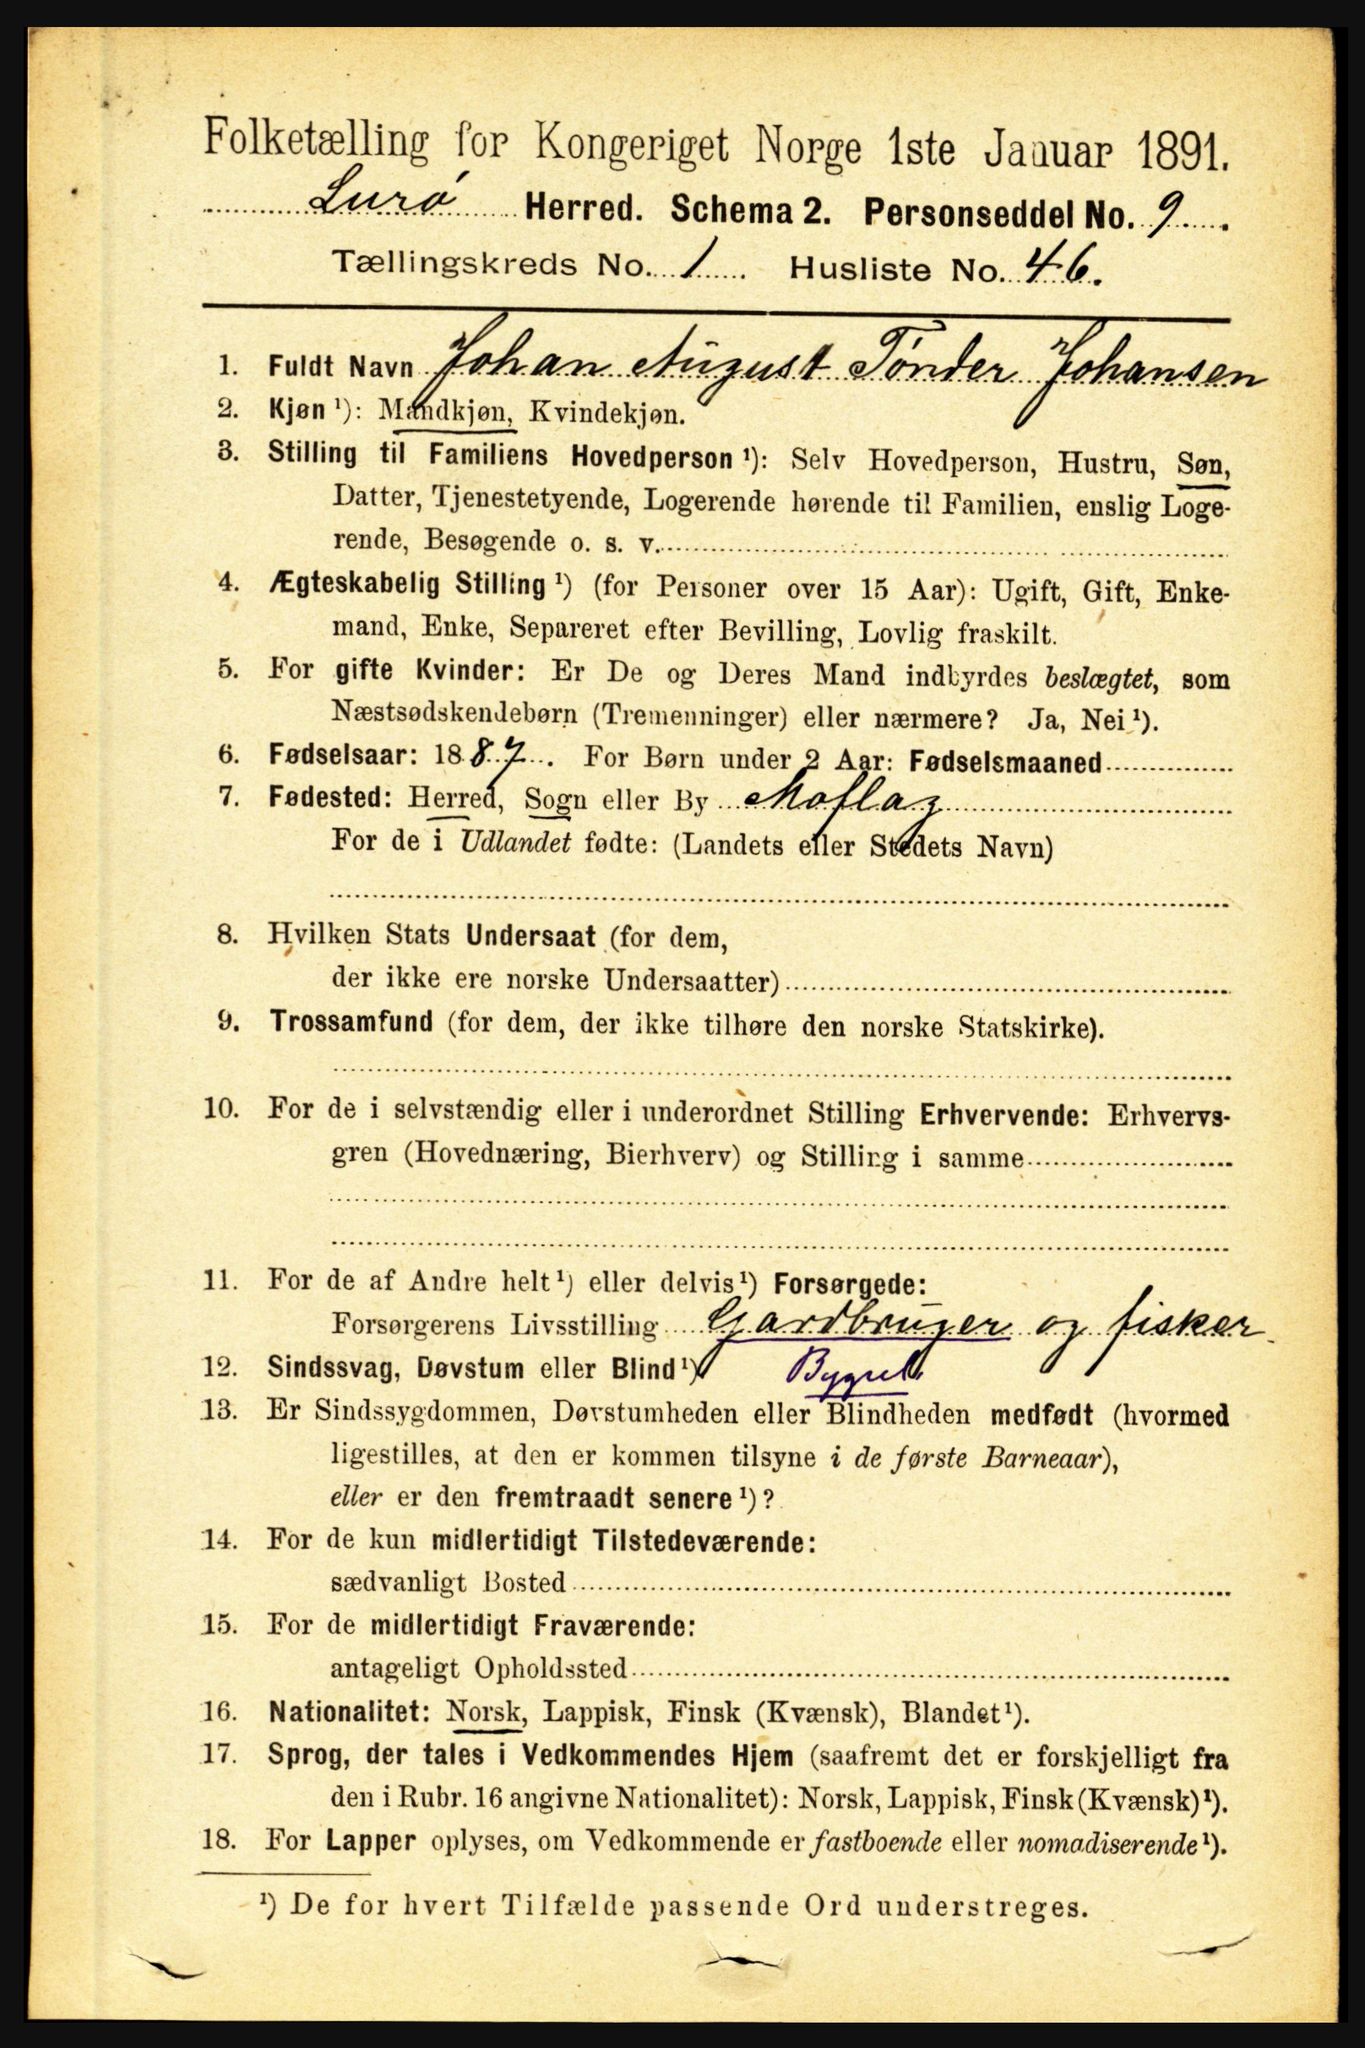 Folketælling for Kongeriget Norge 1ste Januar 1891.
Lurø Herred. Schema 2. Personseddel No. 9
Tællingskreds No. 1 Husliste No. 46.
1. Fuldt Navn Johan August Tønder Johansen
2. Kjøn ¹): Mandkjøn, Kvindekjøn.
3. Stilling til Familiens Hovedperson ¹): Selv Hovedperson, Hustru, Søn,
Datter, Tjenestetyende, Logerende hørende til Familien, enslig Loge-
rende, Besøgende o. s. v.
4. Ægteskabelig Stilling ¹) (for Personer over 15 Aar): Ugift, Gift, Enke-
mand, Enke, Separeret efter Bevilling, Lovlig fraskilt.
5. For gifte Kvinder: Er De og Deres Mand indbyrdes beslægtet, som
Næstsødskendebørn (Tremenninger) eller nærmere? Ja, Nei ¹).
6. Fødselsaar: 1887. For Børn under 2 Aar: Fødselsmaaned
7. Fødested: Herred, Sogn eller By Moflag
For de i Udlandet fødte: (Landets eller Stedets Navn)
8. Hvilken Stats Undersaat (for dem,
der ikke ere norske Undersaatter)
9. Trossamfund (for dem, der ikke tilhøre den norske Statskirke).
10. For de i selvstændig eller i underordnet Stilling Erhvervende: Erhvervs-
gren (Hovednæring, Bierhverv) og Stilling i samme
11. For de af Andre helt ¹) eller delvis ¹) Forsørgede:
Forsørgerens Livsstilling Gardbruger og fisker
12. Sindssvag, Døvstum eller Blind ¹)
13. Er Sindssygdommen, Døvstumheden eller Blindheden medfødt (hvormed
ligestilles, at den er kommen tilsyne i de første Barneaar),
eller er den fremtraadt senere ¹)?
14. For de kun midlertidigt Tilstedeværende:
sædvanligt Bosted
15. For de midlertidigt Fraværende:
antageligt Opholdssted
16. Nationalitet: Norsk, Lappisk, Finsk (Kvænsk), Blandet ¹).
17. Sprog, der tales i Vedkommendes Hjem (saafremt det er forskjelligt fra
den i Rubr. 16 angivne Nationalitet): Norsk, Lappisk, Finsk (Kvænsk) ¹).
18. For Lapper oplyses, om Vedkommende er fastboende eller nomadiserende ¹).
¹) De for hvert Tilfælde passende Ord understreges.